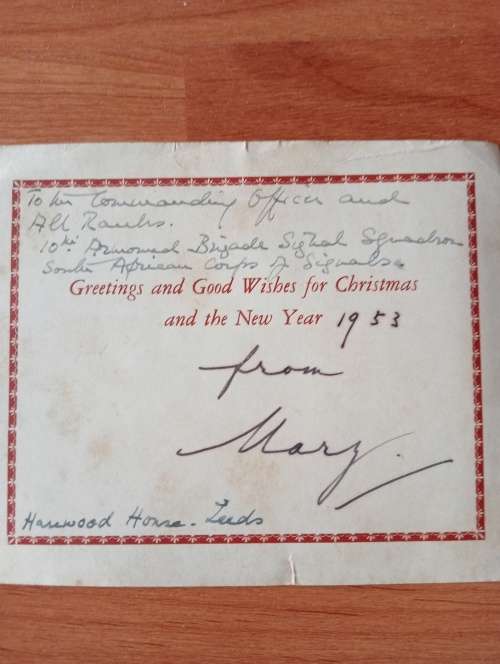 To the Commanding Officer and
All Ranks.
10th Armoured Brigade Signal Squadron
South African Corps of Signals.
Greetings and Good Wishes for Christmas
and the New Year 1953
from
Mary.
Harewood House. Leeds